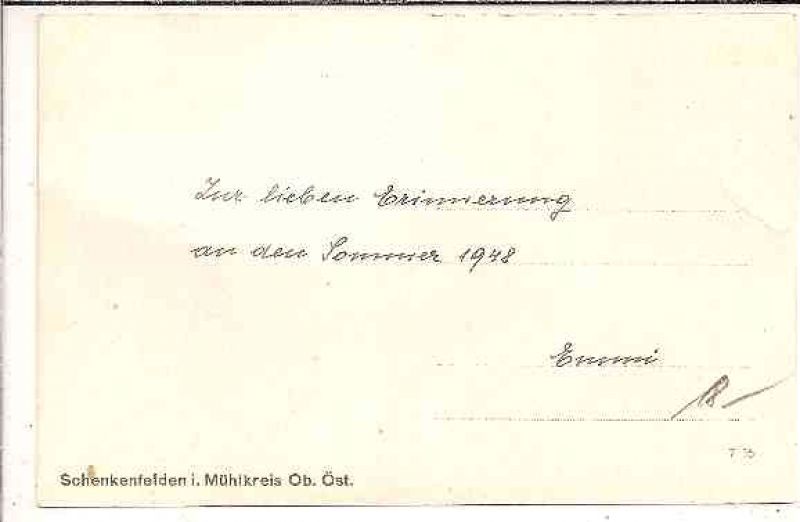 Zur lieben Erinnerung
an den Sommer 1948
Emmi
Schenkenfelden i. Mühlkreis Ob. Öst.